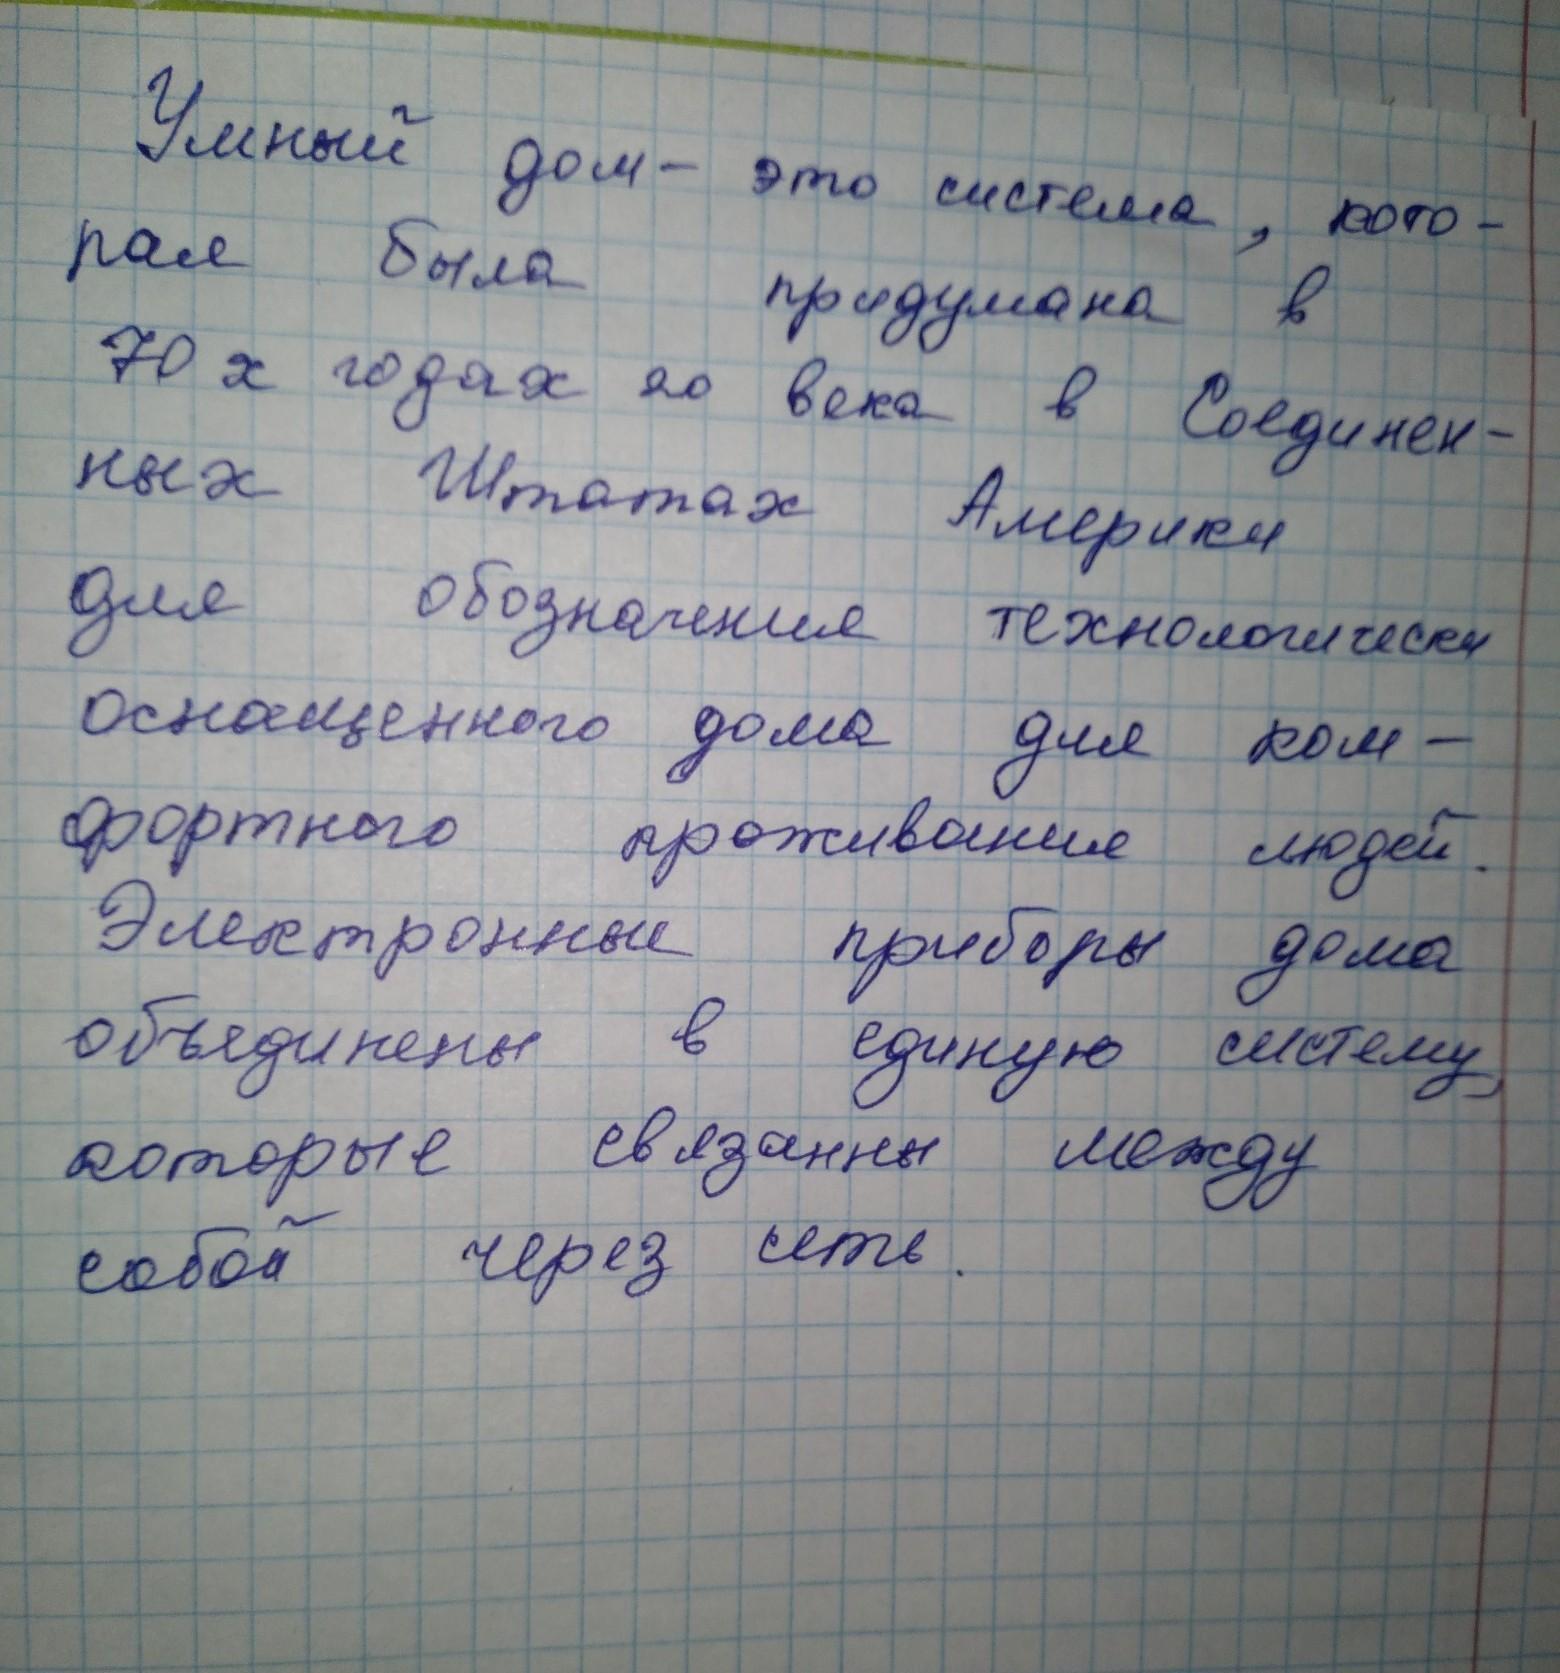 Умный дом - это система, кото-
рая была придумана в
70 х годах 20 века в Соединен-
ных Штатах Америки
для обозначения технологически
оснащенного дома для ком-
фортного проживания людей.
Электронные приборы дома
объединены в единую систему,
которые связанны между
собой через сеть.